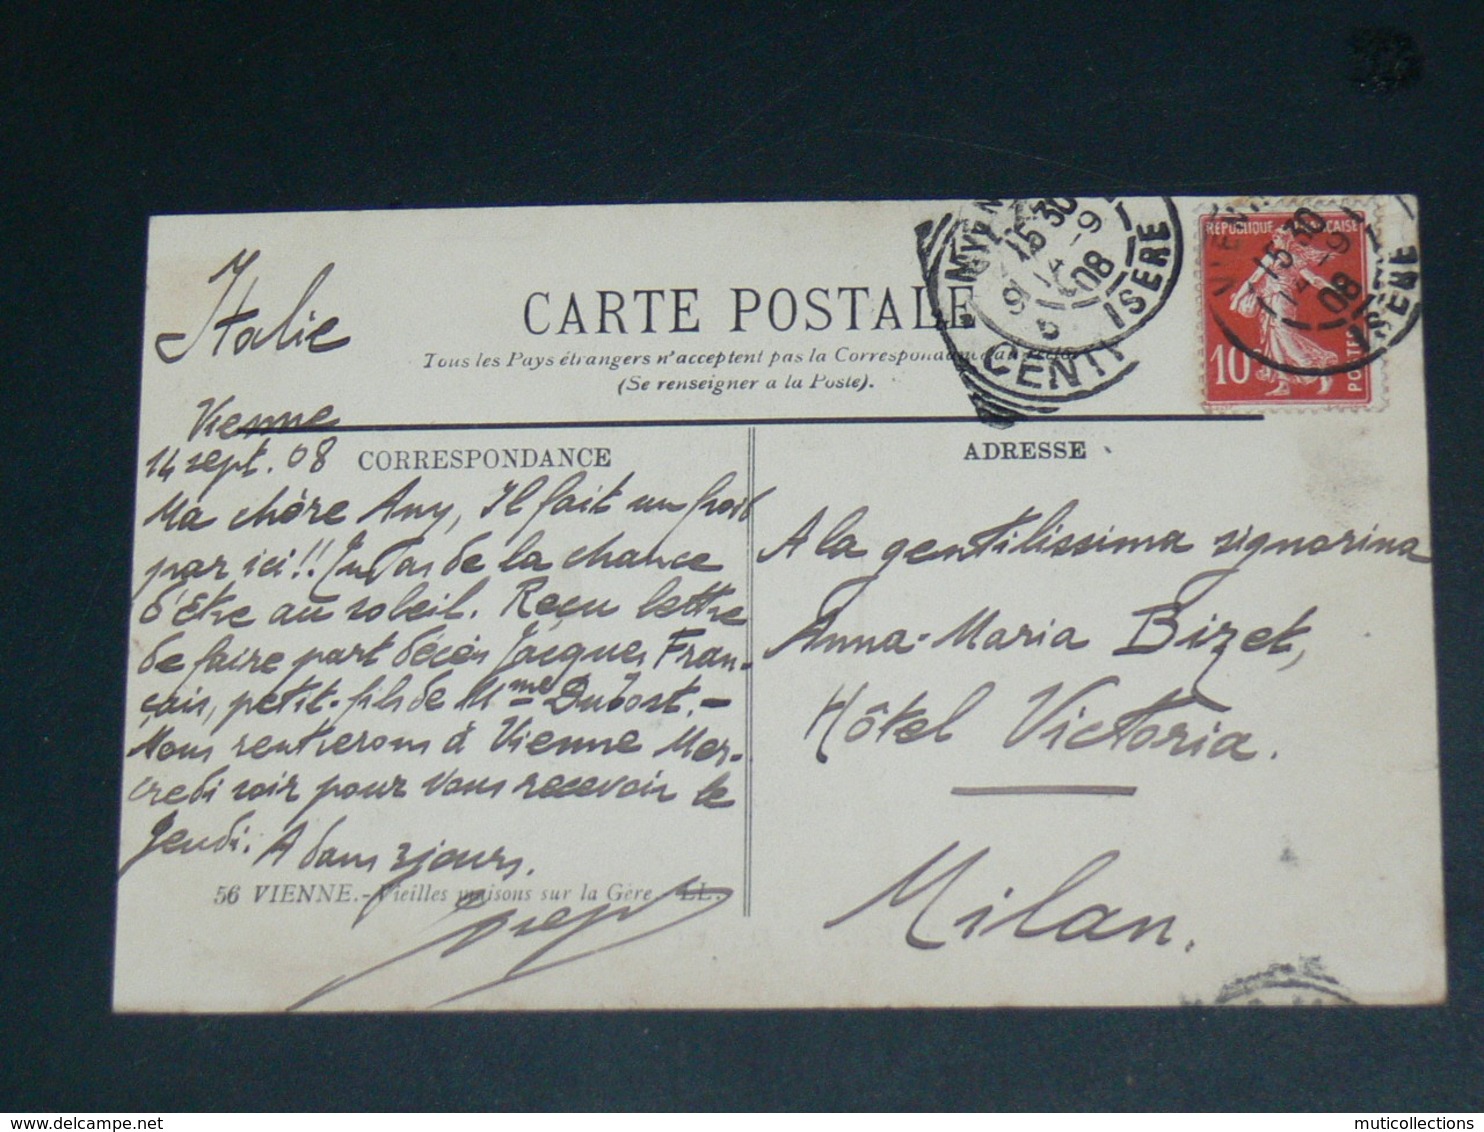 Italie
CARTE POSTALE
Tous les Pays étrangers n'acceptent pas la Correspondance au recto
(Se renseigner a la Poste).
VIENNE
15 30
14 -9
08
ISERE
RÉPUBLIQUE FRANÇAISE
10
POSTES
VIENNE
15 30
14 -9
08
ISERE
Vienne
14 sept. 08
CORRESPONDANCE
Ma chère Any, Il fait un froid
par ici!! Tu as de la chance
d'être au soleil. Reçu lettre
de faire part décès Jacques Fran-
çais, petit-fils de Mme Dubost.-
Nous rentrerons à Vienne Mer-
credi soir pour vous recevoir le
Jeudi. A dans 3 jours.
56 VIENNE.- Vieilles maisons sur la Gère. LL.
ADRESSE
A la gentilissima signorina
Anna-Maria Bizet,
Hôtel Victoria.
Milan.
muticollections